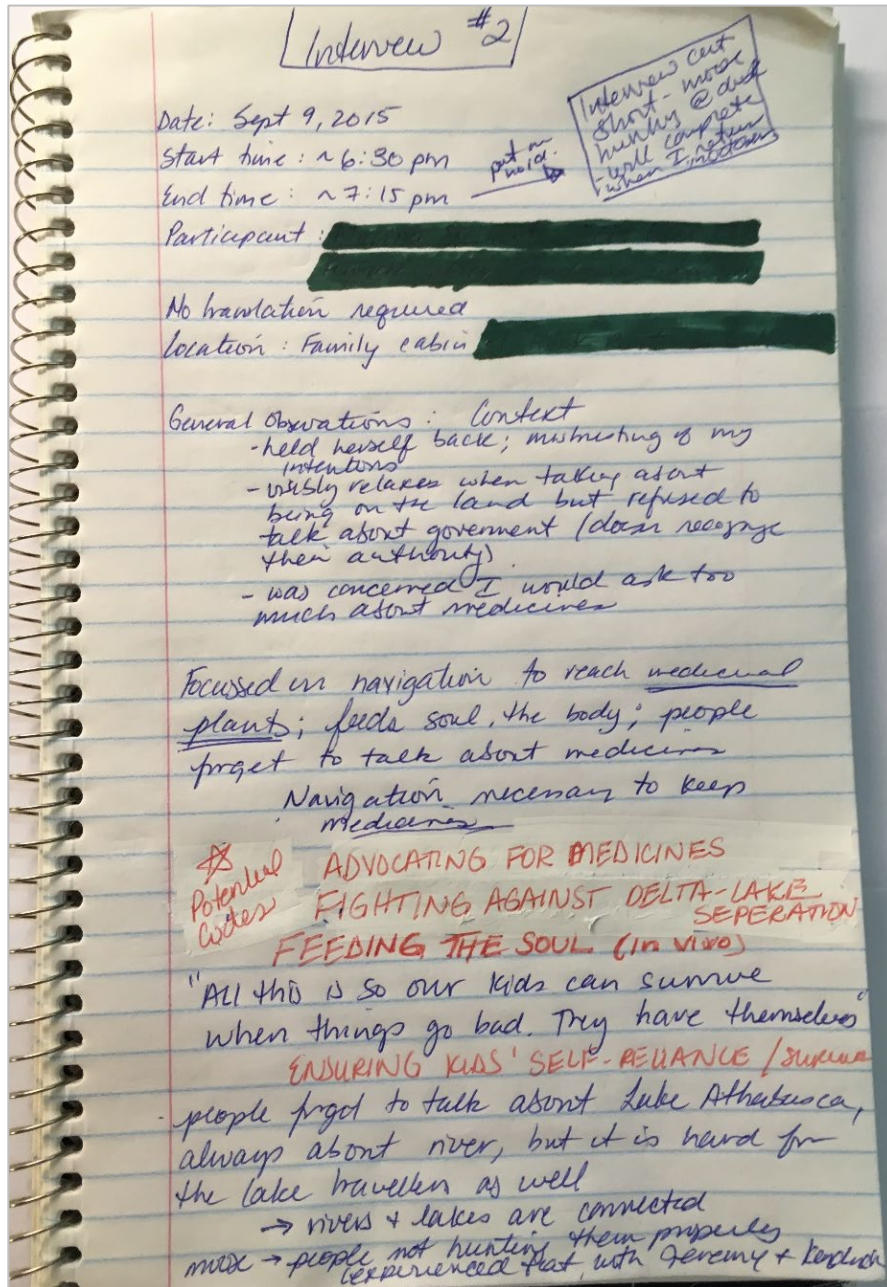 Interview #2
Interview cut
short - moose
hunting @ dusk
- will complete
when I return
Date: Sept 9, 2015
Start time: ~6:30 pm
put on
hold.
End time: ~7:15 pm
Participant:
No translation required
Location: Family cabin
General Observations: Context
- held herself back; mistrusting of my
intentions
- visibly relaxes when talking about
being on the land but refused to
talk about goverment (doesn recognize
their authority)
- was concerned I would ask too
much about medicines
Focussed on navigation to reach medicinal
plants; feeds soul, the body; people
forget to talk about medicines
Navigation necessary to keep
medicines
Potential
Codes
ADVOCATING FOR MEDICINES
FIGHTING AGAINST DELTA-LAKE
SEPERATION
FEEDING THE SOUL (in vivo)
"All this is so our kids can survive
when things go bad. They have themselves"
ENSURING KIDS' SELF-RELIANCE / survival
people forget to talk about Lake Athabasca,
always about river, but it is hard for
the lake travellers as well
→ rivers + lakes are connected
moose → people not hunting them properly
(experienced that with Jeremy + Kendrick